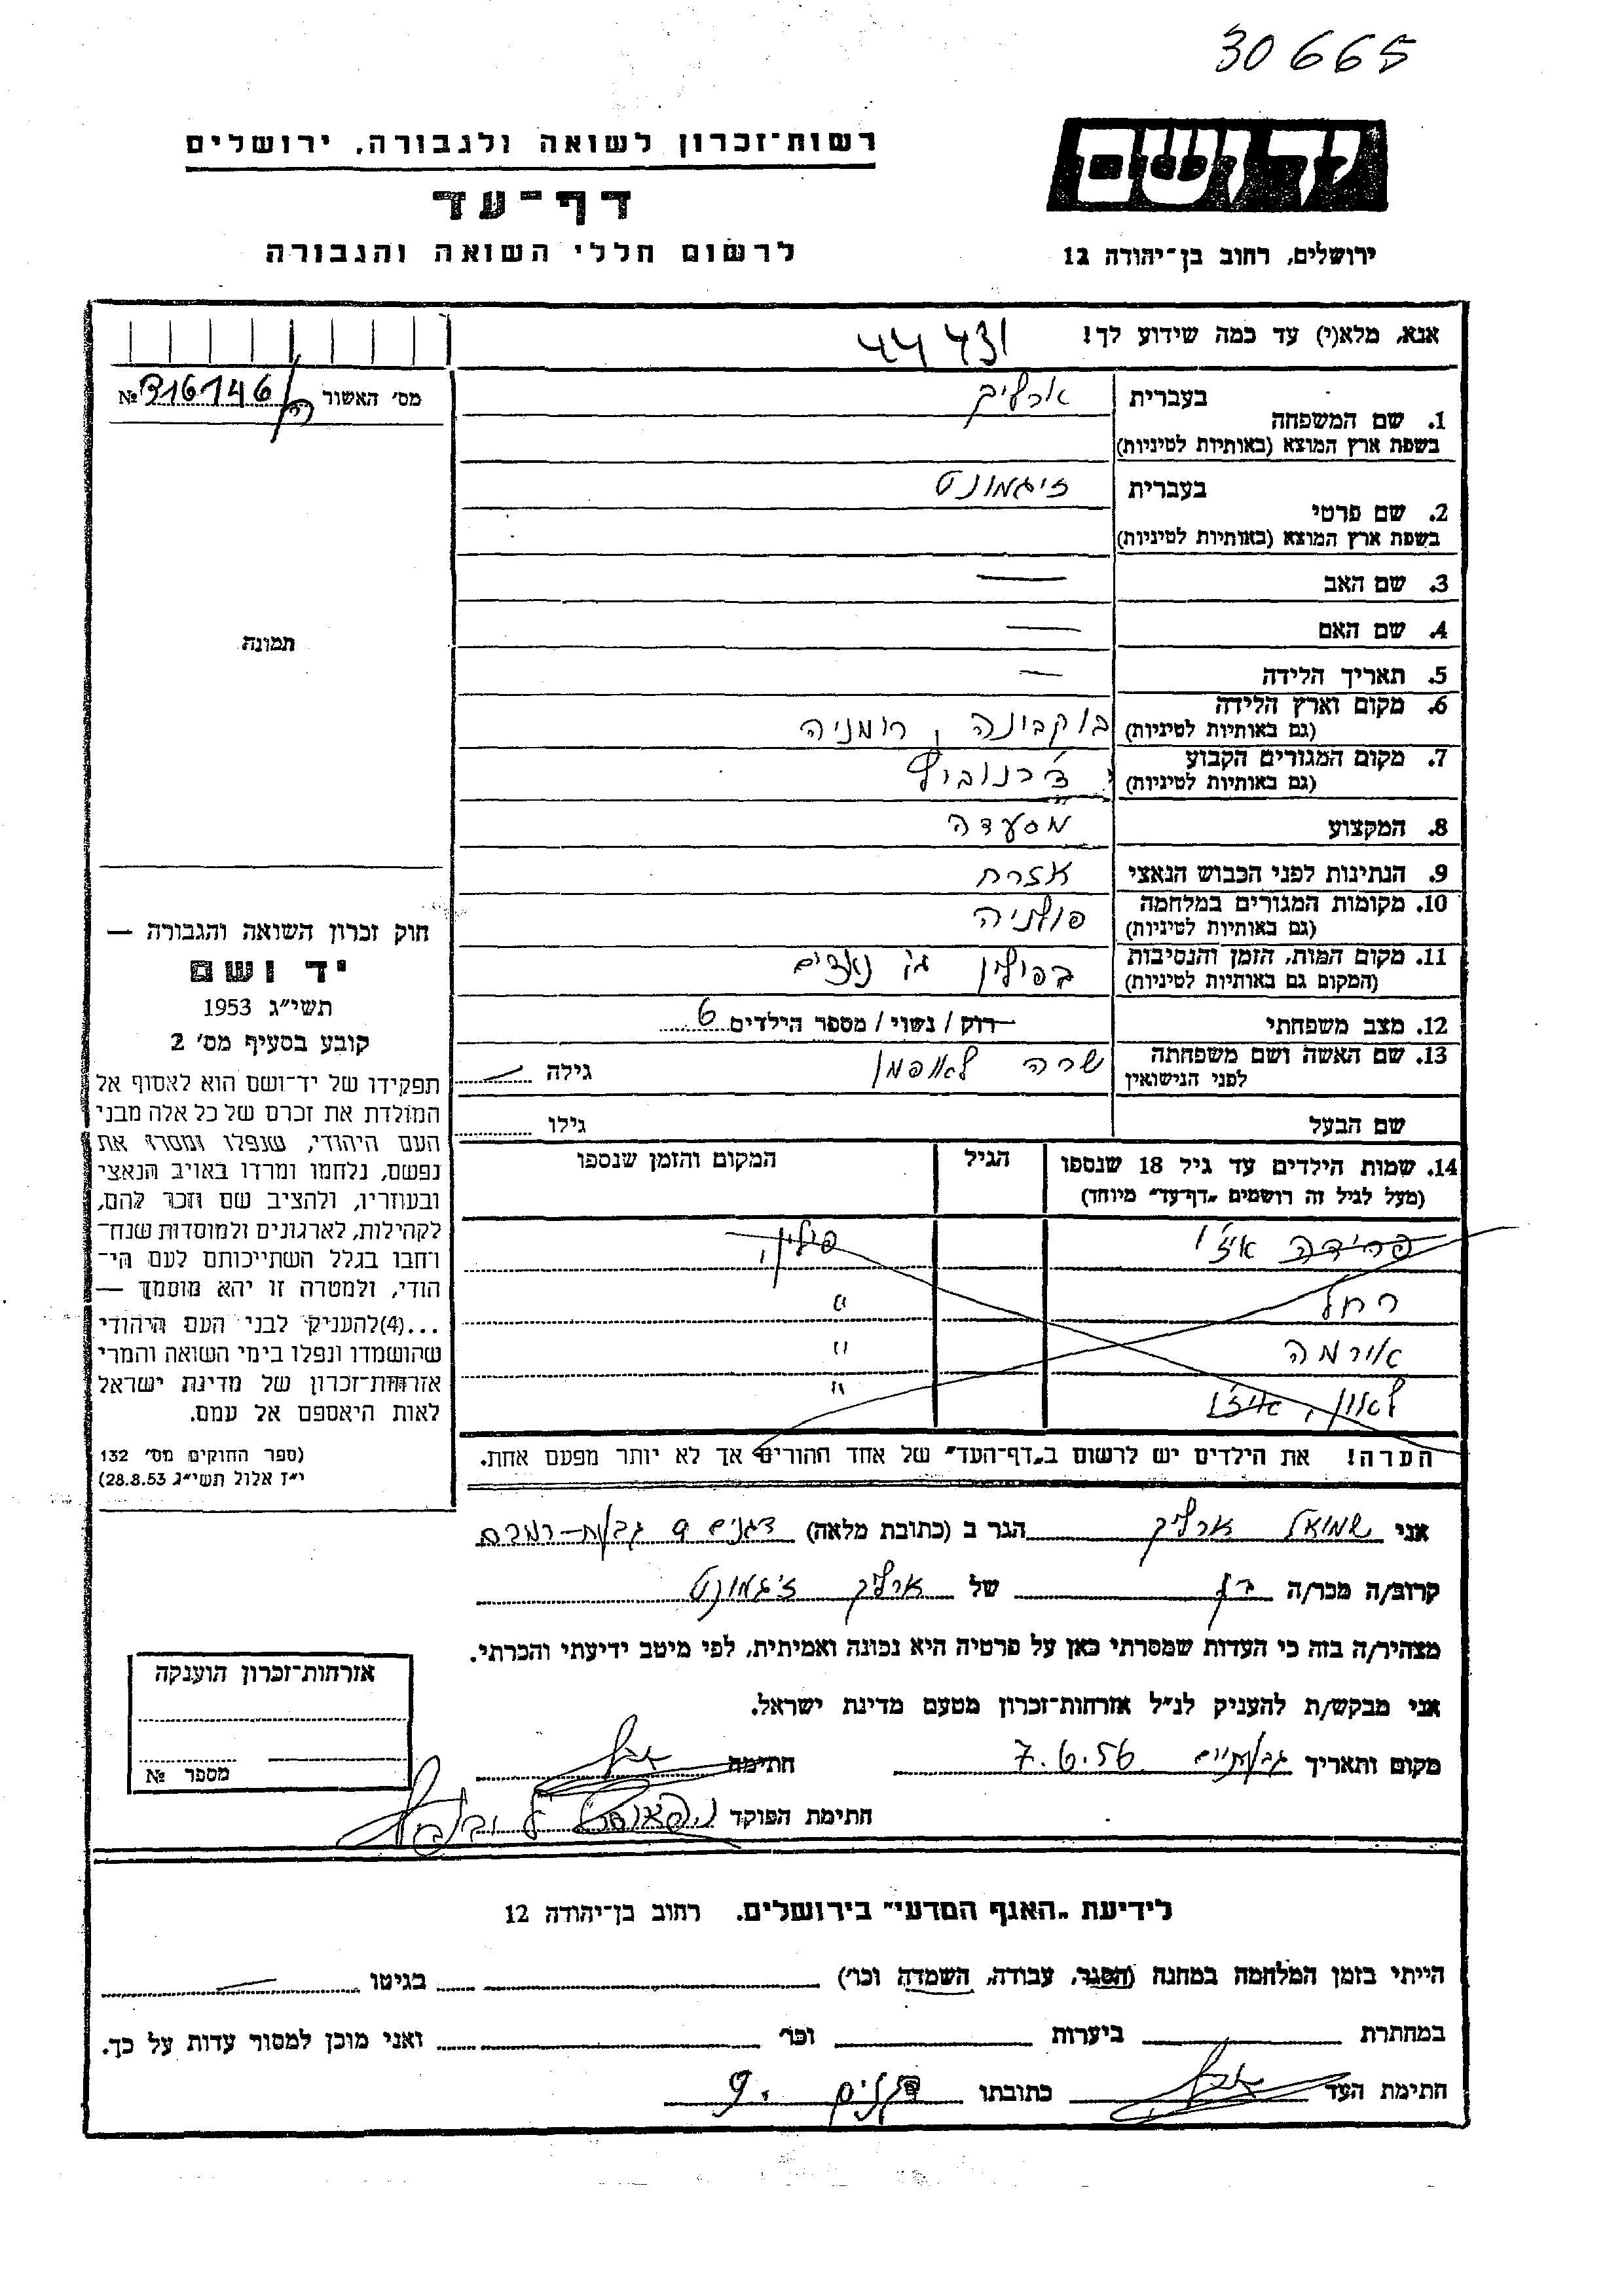 30665
יד ושם
רשות-זכרון לשואה ולגבורה, ירושלים
דף-עד
לרשום חללי השואה והגבורה
ירושלים, רחוב בן-יהודה 12
אנא, מלא(י) עד כמה שידוע לך! 44431
מס' האשור № 316146
תמונה
1. שם המשפחה בעברית ארליך
בשפת ארץ המוצא (באותיות לטיניות)
2. שם פרטי בעברית זיגמונט
בשפת ארץ המוצא (באותיות לטיניות)
3. שם האב —
4. שם האם —
5. תאריך הלידה —
6. מקום וארץ הלידה בוקבינה, רומניה
(גם באותיות לטיניות)
7. מקום המגורים הקבוע צ'רנוביץ
(גם באותיות לטיניות)
8. המקצוע מסעדה
9. הנתינות לפני הכבוש הנאצי אזרח
10. מקומות המגורים במלחמה פולניה
(גם באותיות לטיניות)
11. מקום המות, הזמן והנסיבות בפולין ע"י נאצים
(המקום גם באותיות לטיניות)
12. מצב משפחתי רוק / נשוי / מספר הילדים 6
13. שם האשה ושם משפחתה שרה לאופמן גילה —
לפני הנישואין
שם הבעל גילו
14. שמות הילדים עד גיל 18 שנספו הגיל המקום והזמן שנספו
(מעל לגיל זה רושמים „דף-עד" מיוחד)
פרידה איצ'ו פולין,
רחל "
אירמה "
לאון, איצ'ו "
הערה! את הילדים יש לרשום ב„דף-העד" של אחד ההורים אך לא יותר מפעם אחת.
חוק זכרון השואה והגבורה —
יד ושם
תשי"ג 1953
קובע בסעיף מס' 2
תפקידו של יד-ושם הוא לאסוף אל
המולדת את זכרם של כל אלה מבני
העם היהודי, שנפלו ומסרו את
נפשם, נלחמו ומרדו באויב הנאצי
ובעוזריו, ולהציב שם וזכר להם,
לקהילות, לארגונים ולמוסדות שנח-
רבו בגלל השתייכותם לעם הי-
הודי, ולמטרה זו יהא מוסמך —
...(4)להעניק לבני העם היהודי
שהושמדו ונפלו בימי השואה והמרי
אזרחות-זכרון של מדינת ישראל
לאות היאספם אל עמם.
(ספר החוקים מס' 132
י"ז אלול תשי"ג 28.8.53)
אני שמואל ארליך הגר ב (כתובת מלאה) דגנים 9 גבעת-רמב"ם
קרוב/ה מכר/ה בן של ארליך זיגמונט
מצהיר/ה בזה כי העדות שמסרתי כאן על פרטיה היא נכונה ואמיתית, לפי מיטב ידיעתי והכרתי.
אני מבקש/ת להעניק לנ"ל אזרחות-זכרון מטעם מדינת ישראל.
מקום ותאריך גבעתיים 7.6.56 חתימה
חתימת הפוקד
אזרחות-זכרון הוענקה
מספר №
לידיעת „האגף המדעי" בירושלים, רחוב בן-יהודה 12
הייתי בזמן המלחמה במחנה (הסגר, עבודה, השמדה וכו') בגיטו —
במחתרת ביערות וכו' ואני מוכן למסור עדות על כך.
חתימת העד כתובתו דגנים 9